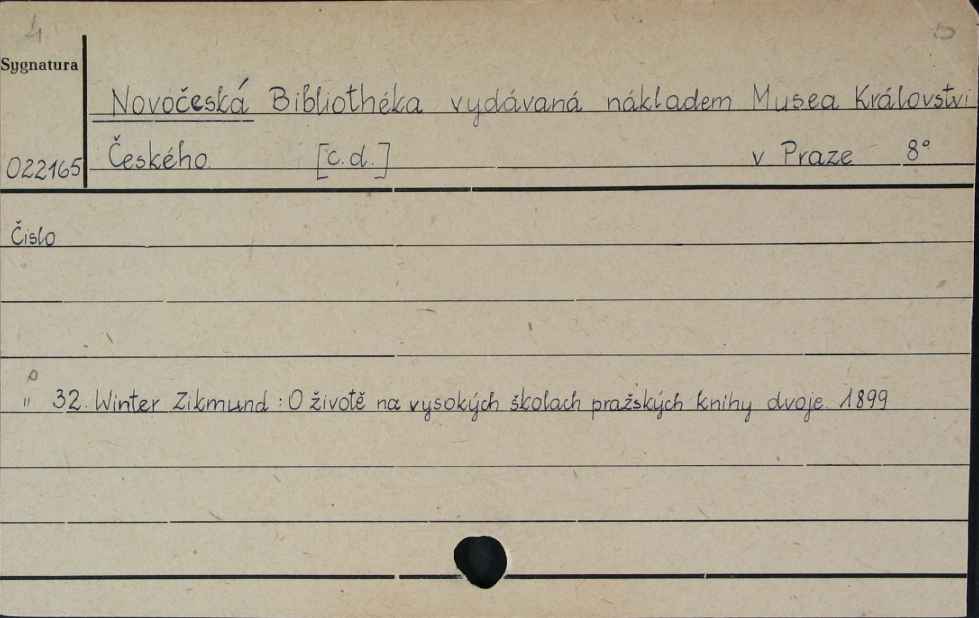 4
Sygnatura
Novočeská Bibliothéka vydávaná nákladem Musea Království
022165 Českého [c.d.] v Praze 8°
Čislo
" 32. Winter Zikmund : O životě na vysokých školach pražských knihy dvoje. 1899